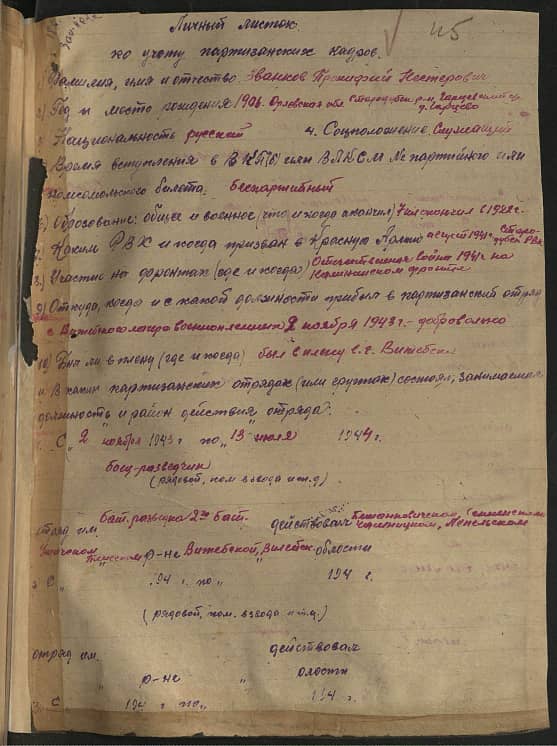 45
Личный листок
по учету партизанских кадров.
Фамилия, имя и отчество Званков Прокофий Нестерович
Год и место рождения 1906. Орловская обл. Стародубск. р-н,
Национальность русский 4. Соцположение Служащий
Время вступления в ВКП(б) или ВЛКСМ № партийного или
комсомольского билета. беспартийный
6) Образование: общее и военное (что и когда окончил) 7 кл. окончил в 1922 г.
Каким РВК и когда призван в Красную Армию август 1941 г. Старо-
дубск РВК
8) Участие на фронтах (где и когда) Отечественная война 1941 г. на
Калининском фронте
9) Откуда, когда и с какой должности прибыл в партизанский отряд
с Витебского лагеря военнопленных 2 ноября 1943 г. - добровольно
10) Был ли в плену (где и когда) был в плену в г. Витебске
В каких партизанских отрядах (или группах) состоял, занимаемая
должность и район действия отряда?
С "2 ноября 1943 г. по "13 июля 1944 г.
боец-разведчик
(рядовой, пом. взвода и т.д)
отряд им. бат. разведка 2го бат. действовал Бешенковичском, Сенненском
Чашникском, Лепельском
р-не Витебской, области
С " 194 г. по " 194 г.
(рядовой, пом. взвода и т.д.)
отряд им. действовал
р-не " области
С 194 г. по " 194 г.